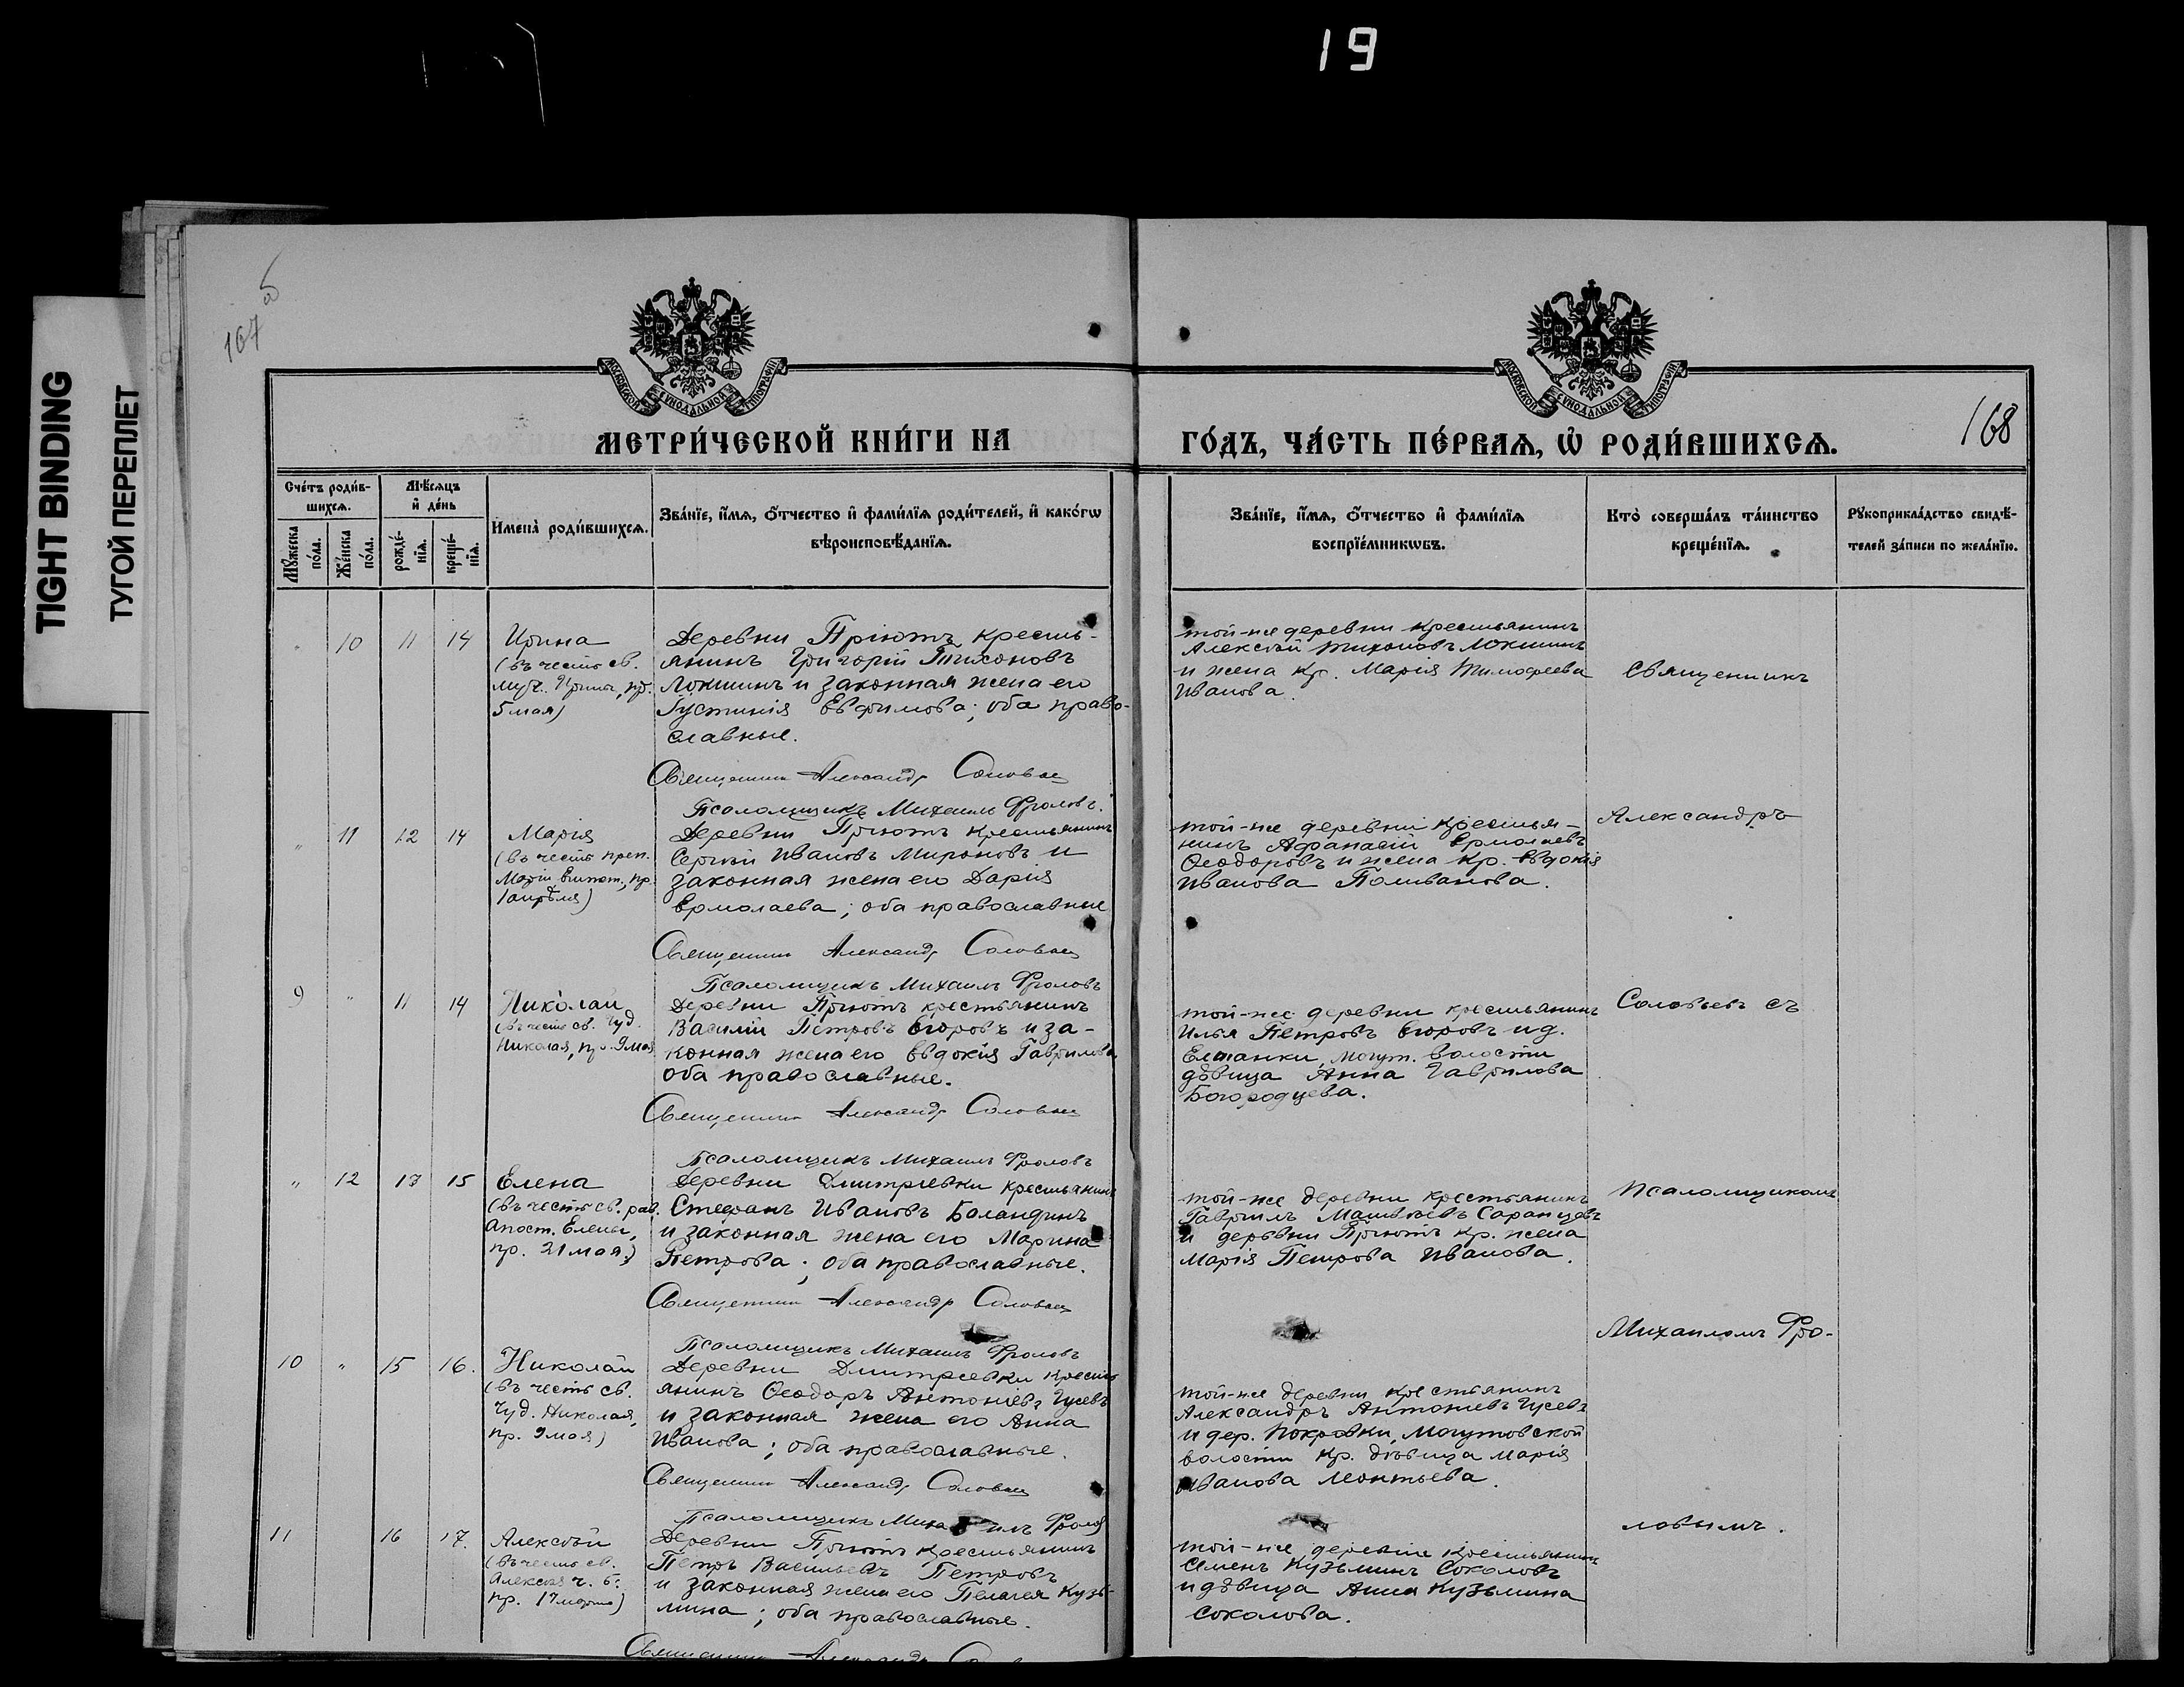 19
TIGHT BINDING
ТУГОЙ ПЕРЕПЛЕТ
167
168
МОСКОВСКОЙ СѴНОДАЛЬНОЙ ТИПОГРАФІИ
МОСКОВСКОЙ СѴНОДАЛЬНОЙ ТИПОГРАФІИ
МЕТРИ́ЧЕСКОЙ КНИ́ГИ НА
ГО́ДЪ, ЧА́СТЬ ПЕ́РВАѦ, Ѡ҆ РОДИ́ВШИХСѦ.
Сче́тъ роди́в-
шихсѧ.
Мꙋ́жеска
по́ла.
Же́нска
по́ла.
Мѣ́сѧцъ
и҆ де́нь
рожде́-
нїѧ.
креще́-
нїѧ.
И҆мена̀ роди́вшихсѧ.
Зва́нїе, и҆́мѧ, ѻ҆́тчество и҆ фами́лїѧ роди́телей, и҆ како́гѡ
вѣроисповѣ́данїѧ.
Зва́нїе, и҆́мѧ, ѻ҆́тчество и҆ фами́лїѧ
воспрїе́мникѡвъ.
Кто̀ соверша́лъ та́инство
креще́нїѧ.
Рꙋкоприкла́дство свидѣ́-
телей за́писи по жела́нїю.
" 10 11 14
Ирина
(въ честь св.
муч. Ирины, пр.
5 мая)
Деревни Пріютъ кресть-
янинъ Григорій Тихоновъ
Локшинъ и законная жена его
Іустинія Евфимова; оба право-
славные.
Священникъ Александр Соловьев
Псаломщикъ Михаилъ Фроловъ.
той-же деревни крестьянинъ
Алексѣй Тихоновъ Локшинъ
и жена кр. Марія Тимофеева
Иванова.
Священникъ
" 11 12 14
Марія
(въ честь преп.
Маріи Египет., пр.
1 апрѣля)
Деревни Пріютъ крестьянинъ
Сергѣй Ивановъ Мироновъ и
законная жена его Дарія
Ермолаева; оба православные
Священникъ Александр Соловьев
Псаломщикъ Михаилъ Фроловъ
той-же деревни крестья-
нинъ Афанасій Ермолаевъ
Ѳеодоровъ и жена кр. Евдокія
Иванова Поливанова.
Александръ
9 " 11 14
Николай
(въ честь св. Чуд.
Николая, пр. 9 мая
Деревни Пріютъ крестьянинъ
Василій Петровъ Егоровъ и за-
конная жена его Евдокія Гаврилова
оба православные.
Священникъ Александр Соловьев
Псаломщикъ Михаилъ Фроловъ
той-же деревни крестьянинъ
Илья Петровъ Егоровъ и д.
Елшанки, Могут. волости
дѣвица Анна Гаврилова
Богородцева.
Соловьевъ съ
" 12 13 15
Елена
(въ честь св. рав.
Апост. Елены,
пр. 21 мая.)
Деревни Дмитріевки крестьянинъ
Стефанъ Ивановъ Баландинъ
и законная жена его Марина
Петрова; оба православные.
Священникъ Александр Соловьев
Псаломщикъ Михаилъ Фроловъ
той-же деревни крестьянинъ
Гавріилъ Матвѣевъ Саранцевъ
и деревни Пріютъ кр. жена
Марія Петрова Иванова.
Псаломщикомъ
10 " 15 16.
Николай
(въ честь св.
Чуд. Николая,
пр. 9 мая)
Деревни Дмитріевки кресть
янинъ Ѳеодоръ Антоніевъ Гусевъ
и законная жена его Анна
Иванова; оба православные.
Священникъ Александр Соловьев
Псаломщикъ Михаилъ Фролов
той-же деревни крестьянинъ
Александръ Антоніевъ Гусевъ
и дер. Покровки, Могутовской
волости кр. дѣвица Марія
Иванова Леонтьева.
Михаиломъ Фро-
11 16 17.
Алексѣй
(въ честь св.
Алексія ч. б.
пр. 17 марта)
Деревни Пріютъ крестьянинъ
Петръ Васильевъ Петровъ
и законная жена его Пелагея Кузь-
мина; оба православные.
Священникъ Александр
той-же деревни крестьянинъ
Семенъ Кузьминъ Соколовъ
и дѣвица Анна Кузьмина
Соколова.
ловымъ.